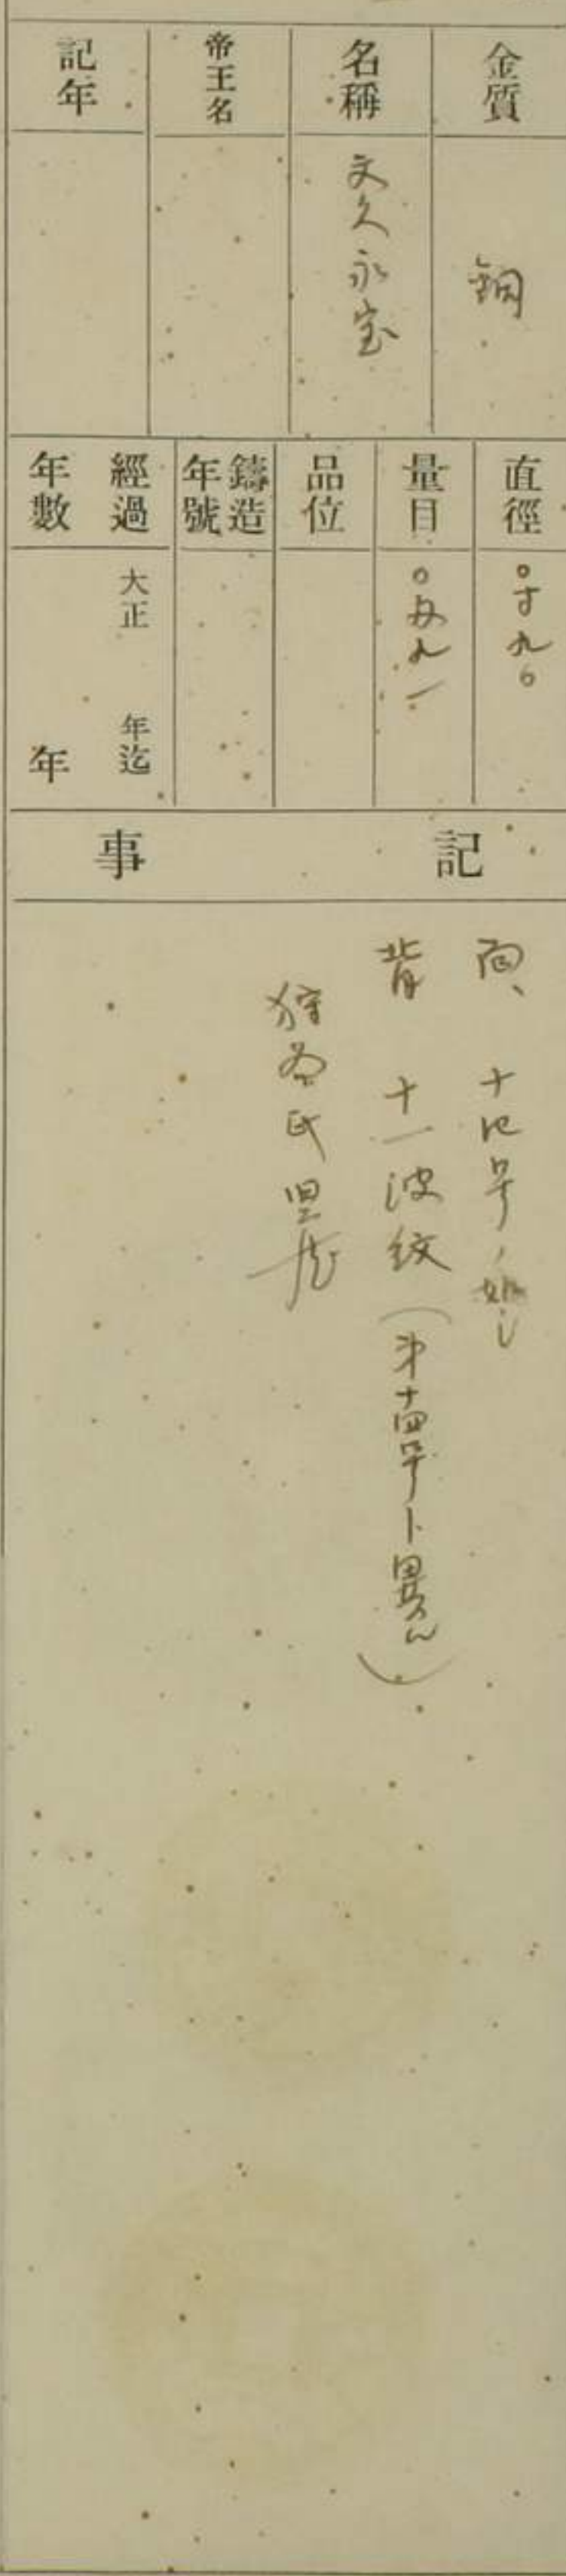 金質
銅
名稱
文久永宝
帝王名
記年
直徑
〇寸九〇
量目
〇匁九一
品位
鑄造
年號
經過
年數
大正 年迄
年
記事
面、十四号ノ如シ
背 十一波紋(第十四号ト異ル)
狩谷氏旧蔵